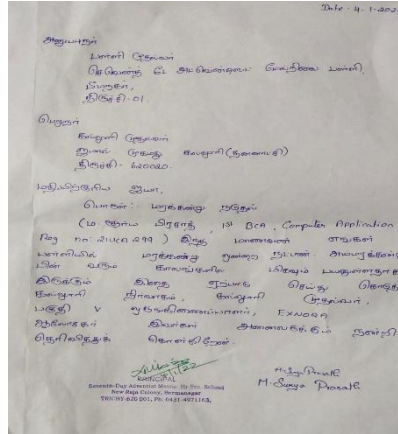 Date - 4-1-202
அனுப்புநர்
பள்ளி முதல்வர்
செவென்த் டே அட்வென்டிஸ்ட் மேல்நிலை பள்ளி
திருச்சி-01.
பெறுநர்
கல்லூரி முதல்வர்
ஜமால் முகமது கல்லூரி (தன்னாட்சி)
திருச்சி - 620020.
மதிப்பிற்குரிய ஐயா,
பொருள் :- மரக்கன்று நடுதல்
(ம. சூர்ய பிரகாத், 1st BCA, Computer Application
Reg no: 21UCA299) இந்த மாணவன் எங்கள்
பள்ளியில் மரக்கன்று ஒன்றை நட்டான்.
பின் வரும் காலங்களில் மிகவும் பயனுள்ளதாக
இருக்கும் இதை ஏற்பாடு செய்து
கல்லூரி நிர்வாகம், கல்லூரி முதல்வர்,
பகுதி V ஒருங்கிணைப்பாளர், EXNORA
இவர்கள் அனைவருக்கும் நன்றி
தெரிவித்துக் கொள்கிறேன்.
PRINCIPAL
Seventh-Day Adventist Matric. Hr. Sec. School
New Raja Colony, Beemanagar
TRICHY-620 001, Ph: 0431-4971163,
M. Surya Prasath